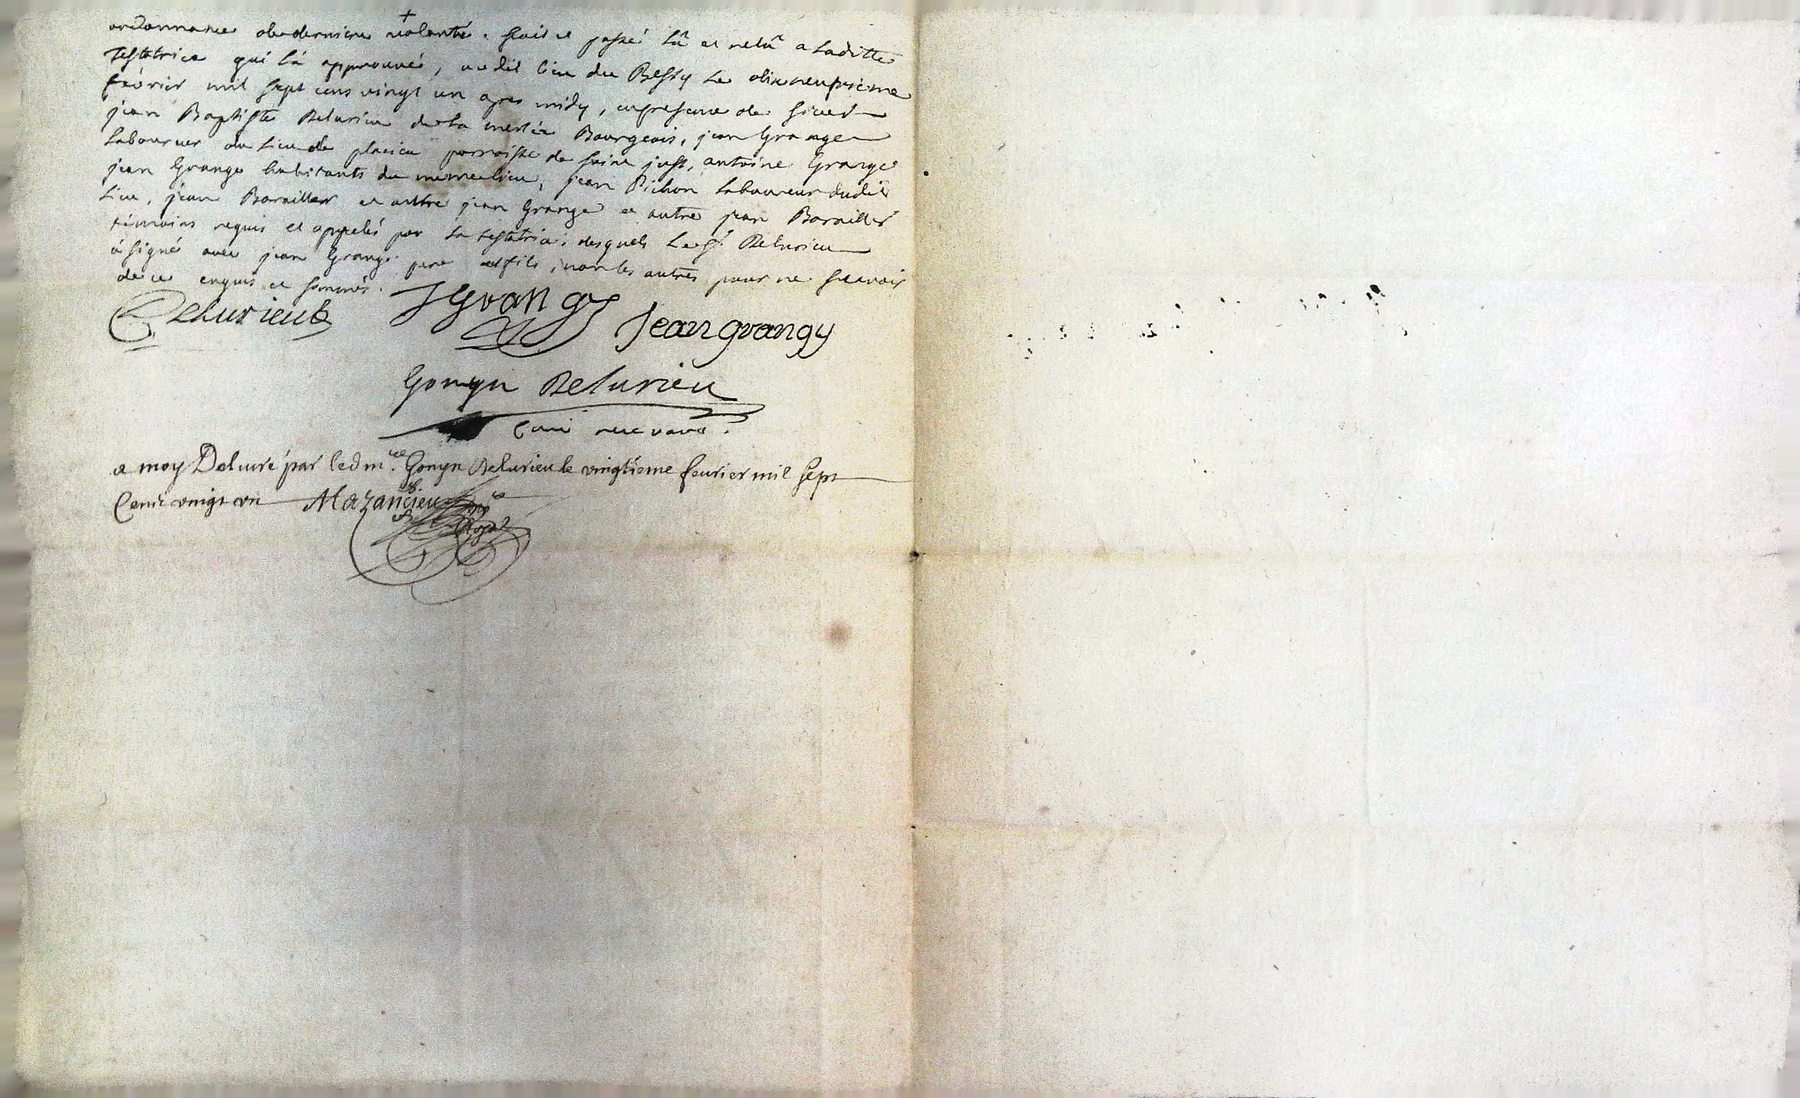 ordonnance de derniere volonté. fait et passé lû et relû a laditte
testatrice qui l'a approuvé, audit lieu du Bessy le dixneufvieme
fevrier mil sept cens vingt un apres midy, en presence de sieur
jean Baptiste Delurieu de la Bourgeois, jean Grange
laboureur du lieu de placieu parroisse de saint just, antoine Grange
jean Grange habitants du meme lieu, jean Pichon laboureur dudit
lieu, jean Barailler et autre jean Grange et autre jean Barailler
témoins requis et appelés par la testatrice, desquels le sr. Delurieu
à signé avec jean Grange pere et fils, non les autres pour ne sçavoir
de ce enquis et sommés.
Delurieu JGrange
Jean grangy
Gonyn Delurieu
a moy Delivré par ledm. Gonyn Delurieu le vingtieme feurier mil sept
Cent vingt un Mazancieu